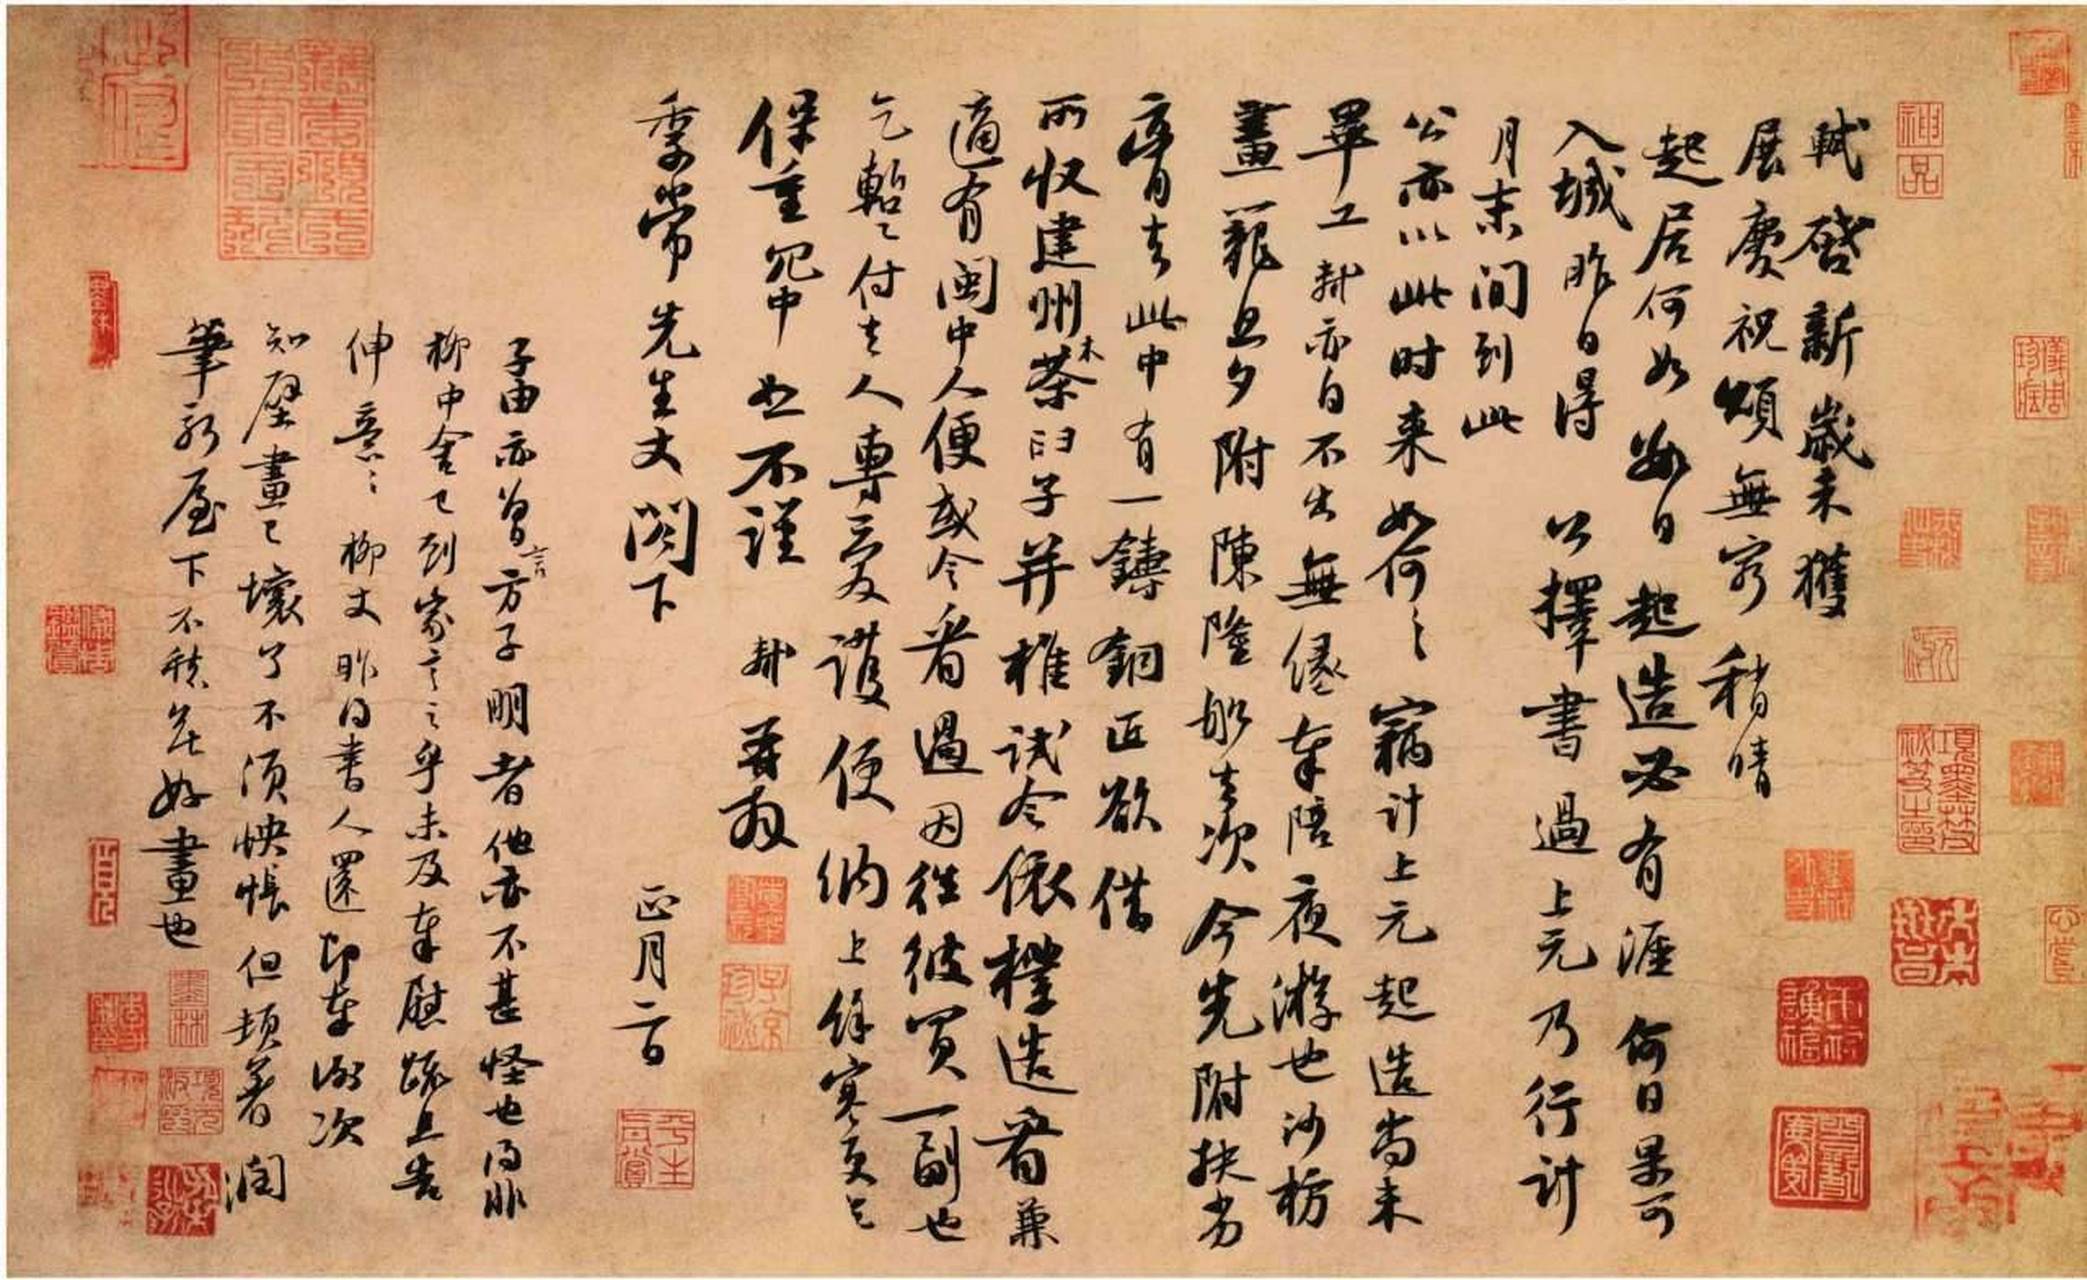 軾啓新歲未獲
展慶祝頌無窮稍晴
起居何如數日起造必有涯何日果可
入城昨日得公擇書過上元乃行計
月末間到此
公亦以此時來如何〻竊計上元起造尚未
畢工軾亦自不出無緣奉陪夜游也沙枋
畫籠旦夕附陳隆船去次今先附扶劣
膏去此中有一鑄銅匠欲借
所收建州木茶臼子并椎試令依樣造看兼
適有閩中人便或令看過因往彼買一副也
乞暫〻付去人專愛護便納上餘寒更乞
保重冗中恕不謹軾再拜
季常先生丈閤下
正月二日
子由亦曾言方子明者他亦不甚怪也得非
柳中舍已到家言之乎未及奉慰疏且告
伸意〻柳丈昨得書人還即奉謝次
知壁畫已壞了不須怏悵但頓著潤
筆新屋下不愁無好畫也
神品